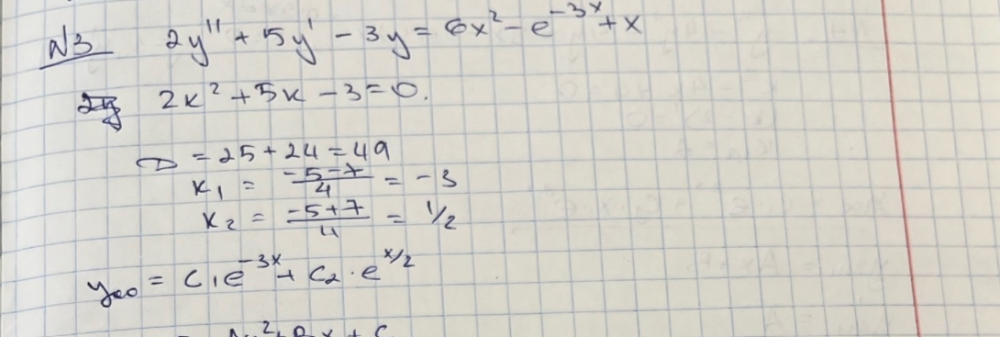 N3 2y'' + 5y' - 3y = 6x² - e^{-3x} + x
2k² + 5k - 3 = 0.
D = 25 + 24 = 49
k₁ = \frac{-5-7}{4} = -3
k₂ = \frac{-5+7}{4} = 1/2
y₀₀ = C₁e^{-3x} + C₂ · e^{x/2}